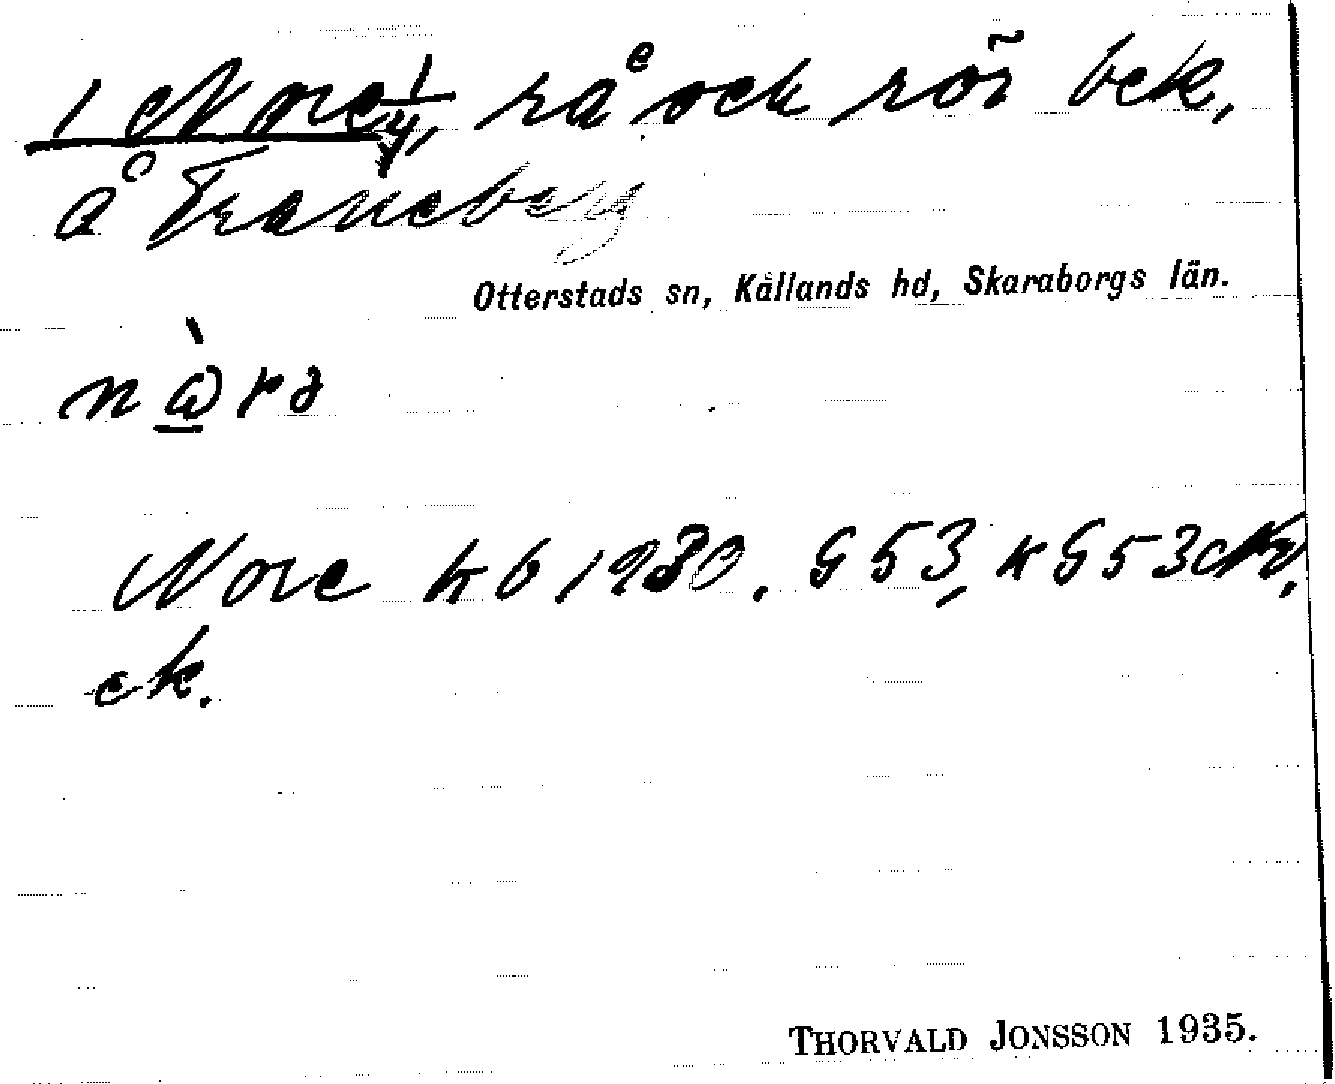 1 Nore 1/4, rå och rör bek,
å Traneberg
Otterstads sn, Kållands hd, Skaraborgs län.
nὼrə
Nore kb 1930. G 53, KG 53
ek.
THORVALD JONSSON 1935.